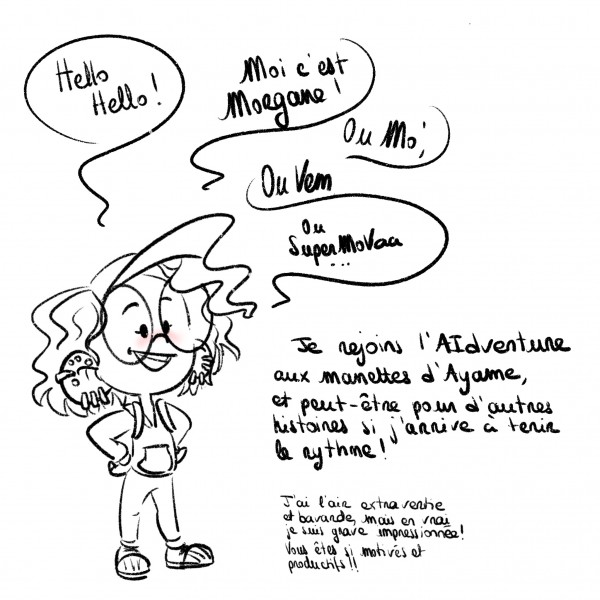 Hello
Hello!
Moi c'est
Morgane!
Ou Moi,
Ou Vem
Ou
SuperMoVaa
...
Je rejoins l'AIdventure
aux manettes d'Ayame,
et peut-être pour d'autres
histoires si j'arrive à tenir
le rythme!
J'ai l'air extravertie
et bavarde, mais en vrai
je suis grave impressionnée!
Vous êtes si motivés et
productifs!!